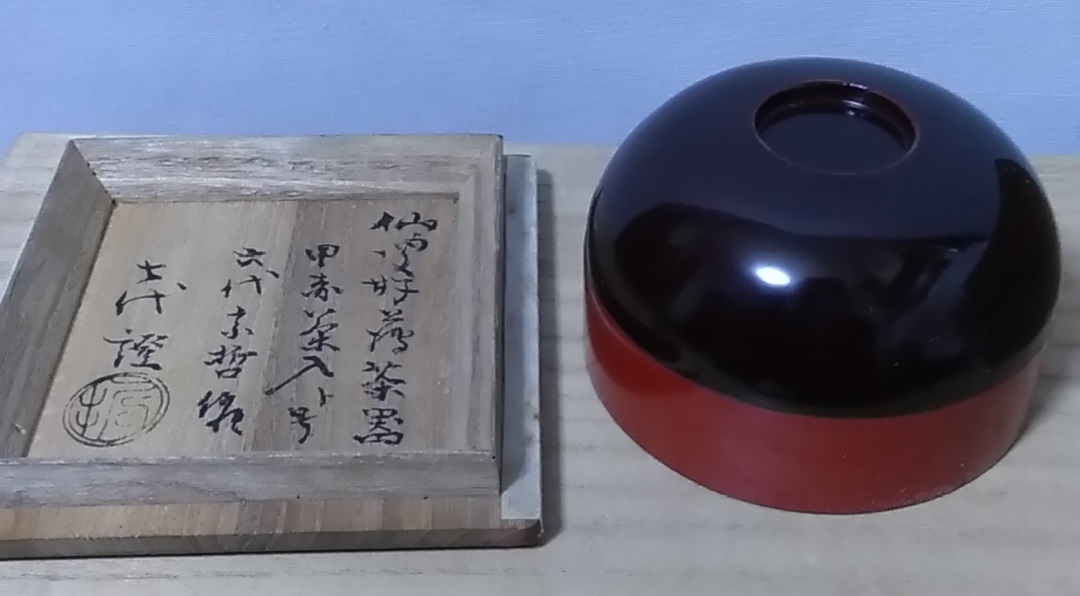 仙叟好薄茶器
甲赤茶入ト号
六代宗哲
十一代 證